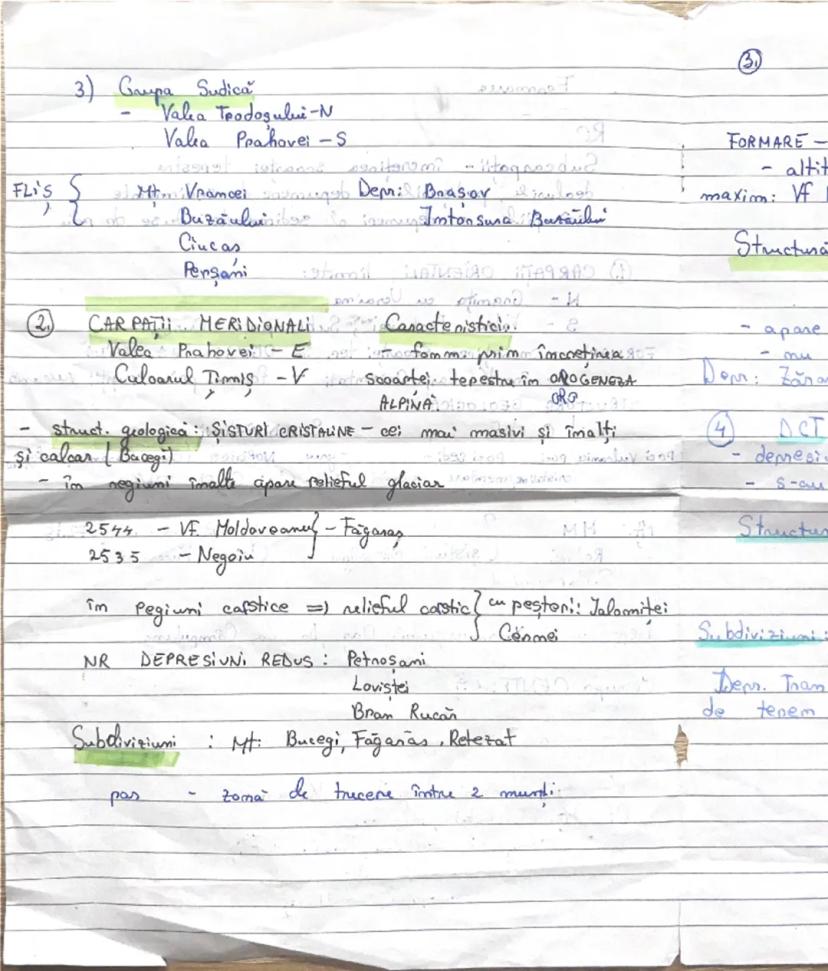 3) Grupa Sudică
- Valea Trotoșului - N
Valea Prahovei - S
FLIȘ { Mt. Vrancei Depr: Brașov
Buzăului Întorsura Buzăului
Ciucaș
Perșani
2. CARPAȚII MERIDIONALI Caracteristici:
Valea Prahovei - E - formă prim încrețirea
Culoarul Timiș - V scoarței terestre în OROGENEZA
ALPINĂ ORO
- struct. geologică: ȘISTURI CRISTALINE - cei mai masivi și înalți
și calcar (Bucegi)
- în regiuni înalte apare relieful glaciar
2544 - Vf. Moldoveanu } - Făgăraș
2535 - Negoiu
în regiuni carstice => relieful carstic { cu peșteri: Ialomiței
Cernei
NR DEPRESIUNI REDUS: Petroșani
Loviștei
Bran Rucăr
Subdiviziuni: Mt: Bucegi, Făgăraș, Retezat
pas - zonă de trecere între 2 munți
3.
FORMARE -
- altit
maxim: Vf
Structură
- apare
- nu
Depr: Zăra
4 DCT
- depresi
- s-au
Structur
Subdiviziuni:
Depr. Tran
de teren